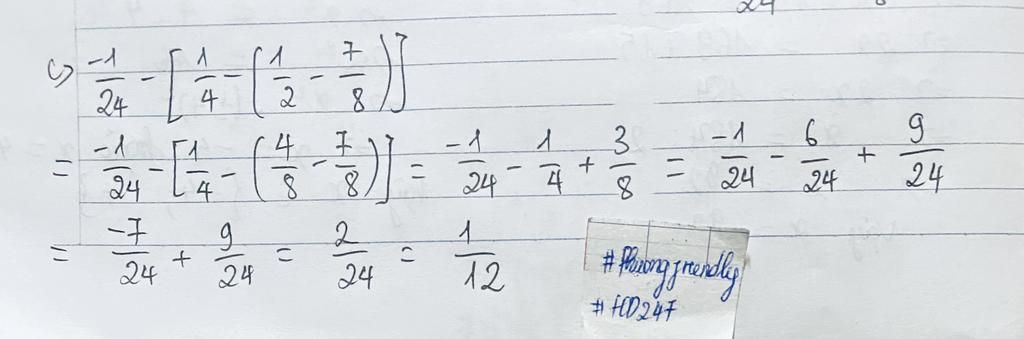 24
c) -1/24 - [1/4 - (1/2 - 7/8)]
= -1/24 - [1/4 - (4/8 - 7/8)] = -1/24 - 1/4 + 3/8 = -1/24 - 6/24 + 9/24
= -7/24 + 9/24 = 2/24 = 1/12
#Phuongfriendly
#HD247